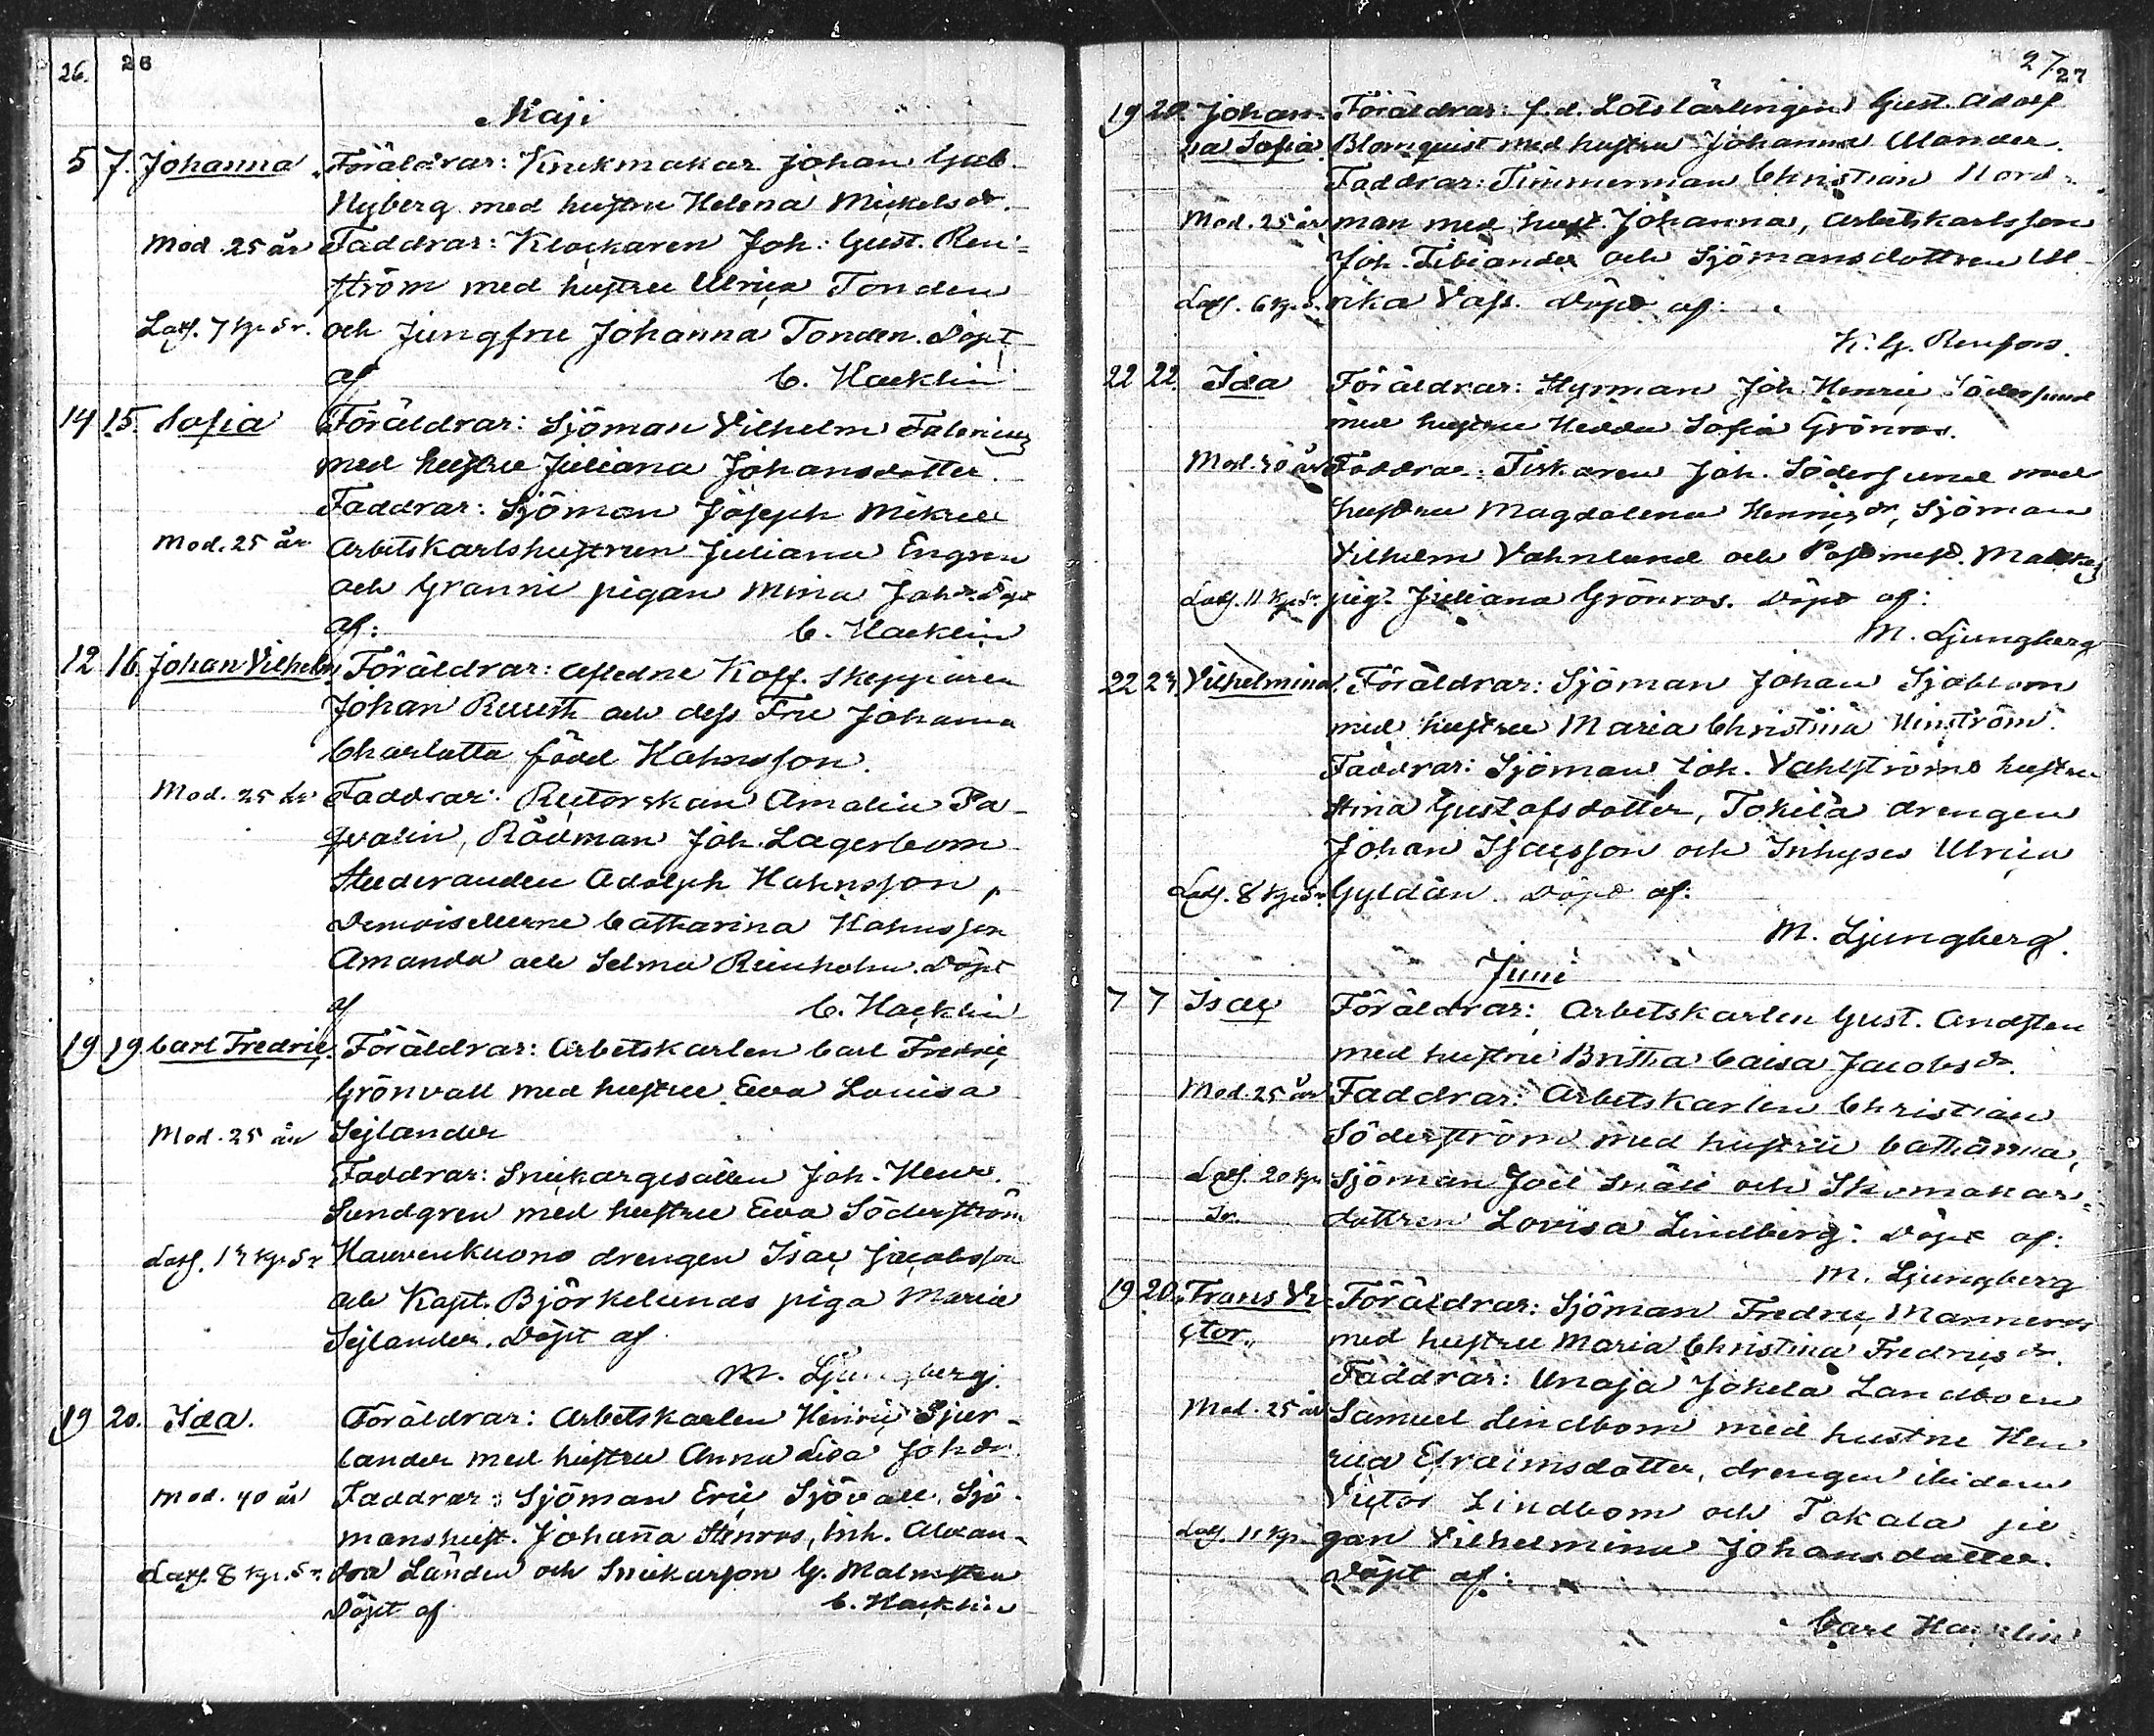 26. 26
Maji
5 7. Johanna Föräldrar: Krukmakar Johan Gust
Nyberg med hustru Helena Mickelsdr.
Mod. 25 år Faddrar: Klockaren Joh: Gust. Ren-
ström med hustru Ulrica Tonden
Lösf. 7 kp. Sr. och Jungfru Johanna Tonden. Döpt
af C. Hacklin
14 15. Sofia Föräldrar: Sjöman Vilhelm Falenius
med hustru Juliana Johansdotter.
Faddrar: Sjöman Joseph Mikree
Mod. 25 år Arbetskarlshustrun Juliana Engren
och Granni pigan Mina Johdr. Döpt
af: C. Hacklin
12 16. Johan Vilhelm Föräldrar: Aflednе Koff. skepparen
Johan Reuth och dess Fru Johanna
Charlotta född Hahnsson.
Mod. 25 år Faddrar: Rectorskan Amalia Pa-
qvalin, Rådman Joh. Lagerbom
Studeranden Adolph Hahnsson,
Demoisellerne Catharina Hahnsson
Amanda och Selma Reinholm. Döpt
af C. Hacklin
19 19 Carl Fredric Föräldrar: Arbetskarlen Carl Fredric
Grönvall med hustru Ewa Lovisa
Mod. 25 år Sejlander
Faddrar: Snickargesällen Joh. Henr.
Sundgren med hustru Ewa Söderström
Lösf. 13 kp. Sr Hauvenkuono drengen Isac Jacobsson
och Kapt. Björkelunds piga Maria
Sejlander. Döpt af
M. Ljungberg.
19 20. Ida. Föräldrar: Arbetskarlen Henric Sjur-
lander med hustru Anna Lisa Johdr.
Mod. 40 år Faddrar: Sjöman Eric Sjövall, Sjö-
manshust. Johanna Stenros, Inh. Alexan-
Lösf. 8 kp. Sr. dra Landen och Snickarson G. Malmsten
Döpt af C. Hacklin
27. 27
19 20. Johan- Föräldrar: f.d. Lotslärlingen Gust. Adolf
na Sofia. Blomquist med hustru Johanna Ulander.
Faddrar: Timmerman Christian Nord-
Mod. 25 år man med hust. Johanna, Arbetskarlsson
Joh. Fibiander och Sjömansdottren Ul-
Lösf. 6 kp. S. rika Vass. Döpt af:
K. G. Renfors.
22 22. Ida Föräldrar: Styrman Joh. Henric Södersund
med hustru Hedda Sofia Grönros.
Mod. 30 år Faddrar: Fiskaren Joh. Södersund med
hustru Magdalena Henricsdr, Sjöman
Vilhelm Vahnlund och Postmest.
Lösf. 11 kp. Sr. pig. Juliana Grönros. Döpt af:
M. Ljungberg
22 23 Vilhelmina. Föräldrar: Sjöman Johan Sjöblom
med hustru Maria Christina Winström.
Faddrar: Sjöman Joh. Vahlströms hustru
Stina Gustafsdotter, Tokila drengen
Johan Isacsson och Inhyses Ulrica
Lösf. 8 kp. Sr. Gyldén. Döpt af:
M. Ljungberg.
Juni
7 7 Isac Föräldrar: Arbetskarlen Gust. Andsten
med hustru Britta Caisa Jacobsdr.
Mod. 25 år Faddrar: Arbetskarlen Christian
Söderström med hustru Catharina,
Lösf. 20 kp. Sjöman Joel Snäll och Skomakar-
Sr. dottren Lovisa Lindberg: Döpt af:
M. Ljungberg
19 20. Frans Vi- Föräldrar: Sjöman Fredric Manneros
ctor. med hustru Maria Christina Fredricsdr.
Faddrar: Unaja Jokela Landboen
Mod. 25 år Samuel Lindbom med hustru Hen
rica Efraimsdotter, drengen ibidem
Victor Lindbom och Takala pi-
Lösf. 11 kp. gan Vilhelmina Johansdotter.
Döpt af:
Carl Hacklin